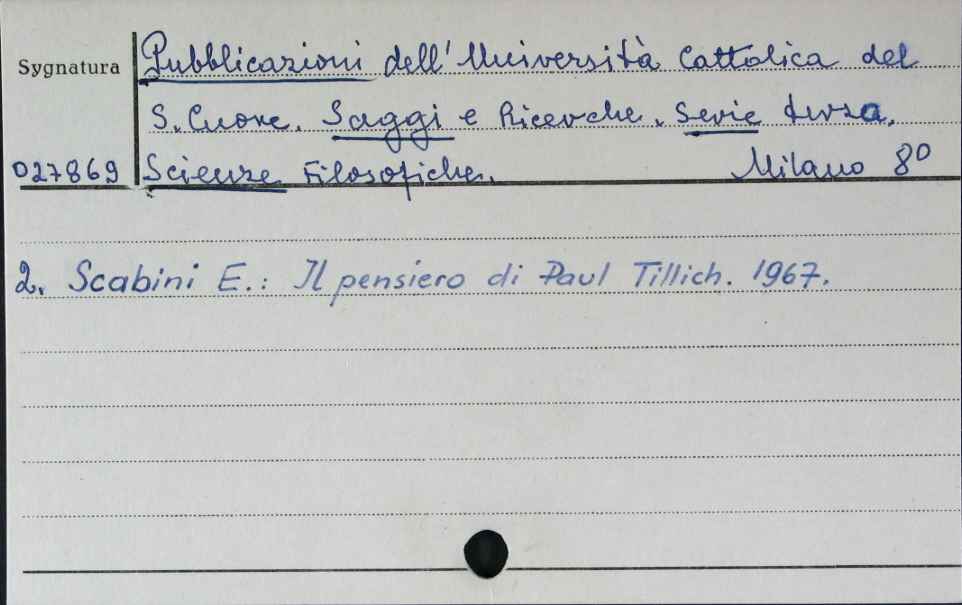 Sygnatura Pubblicazioni dell' Università Cattolica del
S. Cuore. Saggi e Ricerche. Serie terza.
027869 Scienze Filosofiche. Milano 8⁰
2. Scabini E.: Il pensiero di Paul Tillich. 1967.